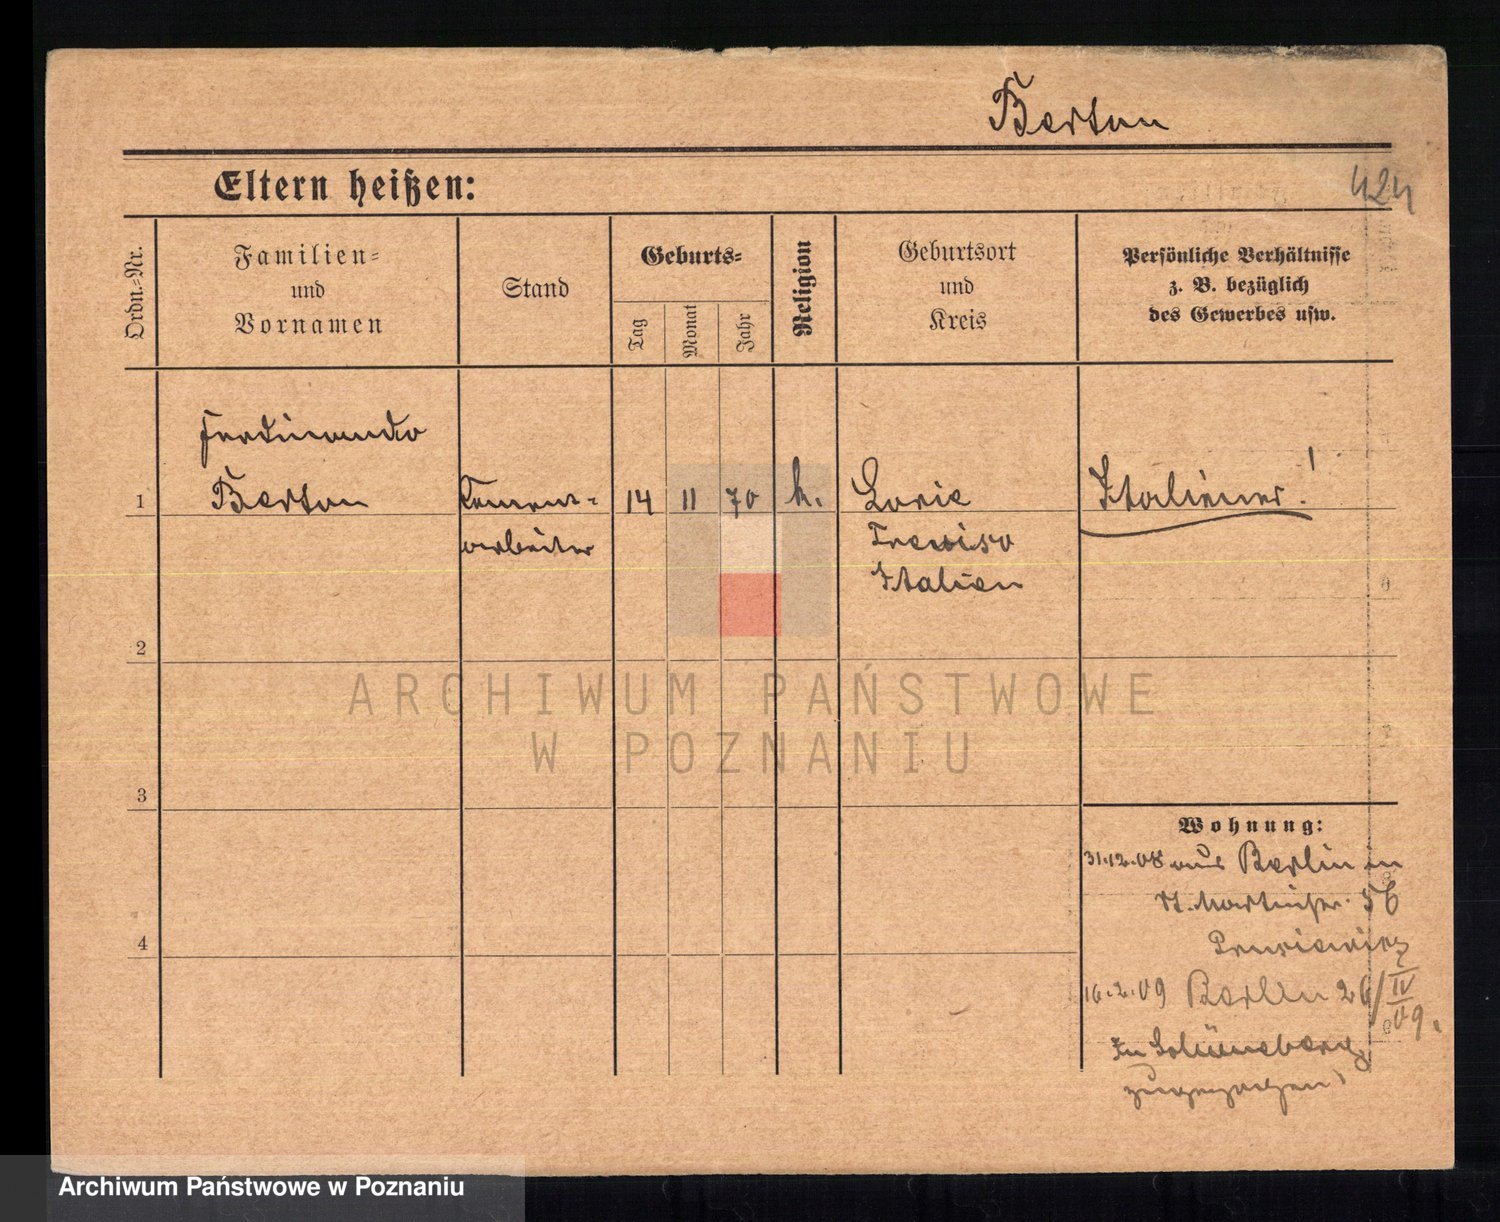 Berton
Eltern heißen:
424
Ordn.-Nr.
Familien-
und
Vornamen
Stand
Geburts-
Tag
Monat
Jahr
Religion
Geburtsort
und
Kreis
Persönliche Verhältnisse
z. B. bezüglich
des Gewerbes usw.
Ferdinando
1 Berton Cement- 14 11 70 k. Loria Italiener!
arbeiter Treviso
Italien
2
ARCHIWUM PAŃSTWOWE
W POZNANIU
3
Wohnung:
31.12.08 aus Berlin in
St. Martinstr. 56
16.2.09 Berlin 26/IV
09.
In Schöneberg
zugezogen
4
Archiwum Państwowe w Poznaniu